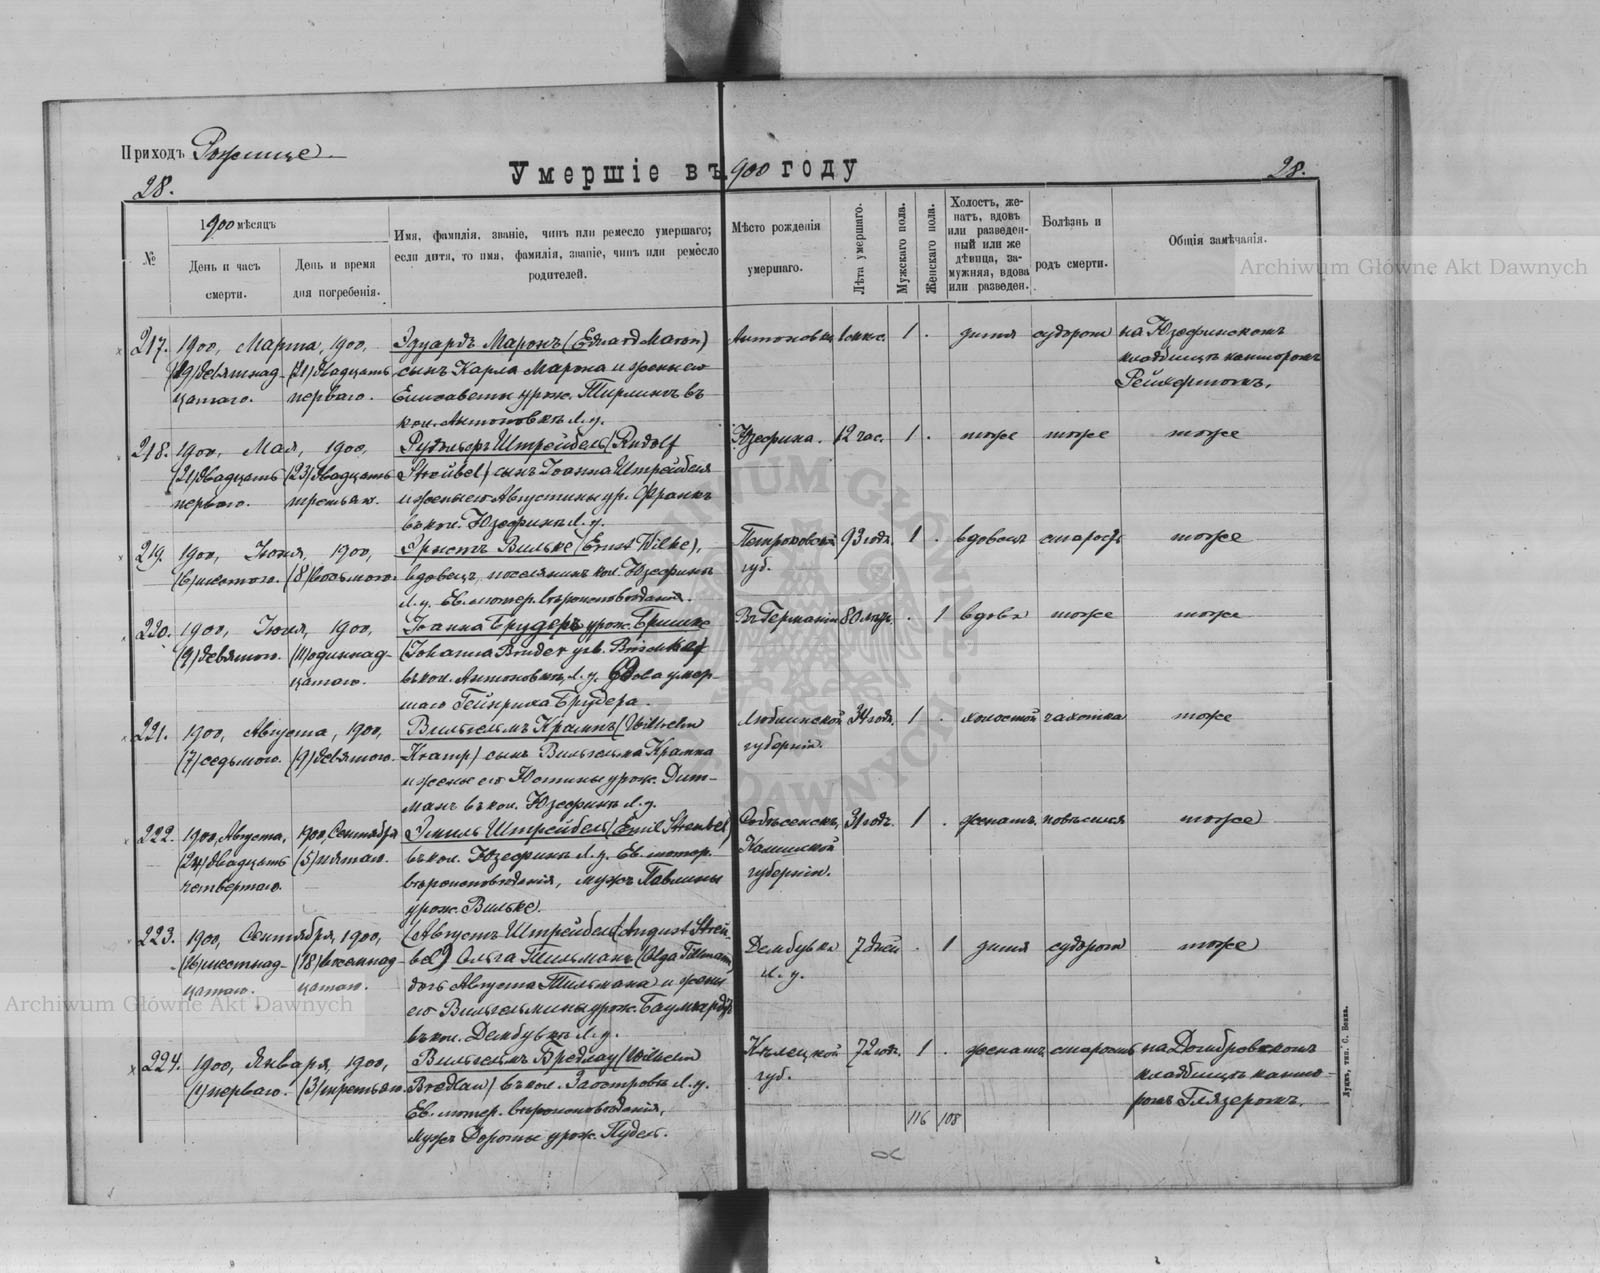 Приходъ Рожище
Умершіе въ 1900 году
28.
28.
№
1900 мѣсяцъ
День и часъ смерти.
День и время дня погребенія.
Имя, фамилія, званіе, чинъ или ремесло умершаго;
если дитя, то имя, фамилія, званіе, чинъ или ремесло
родителей.
Мѣсто рожденія
умершаго.
Лѣта умершаго.
Мужскаго пола.
Женскаго пола.
Холостъ, же-
натъ, вдовъ
или разведен-
ный или же
дѣвица, за-
мужняя, вдова
или разведен.
Болѣзнь и
родъ смерти.
Общія замѣчанія.
217. 1900, Марта, 1900, Эдуардъ Маронъ (Eduard Maron) Антоновка 1 . дитя судороги на Юзефинскомъ
(19) девятнад- (21) двадцать сынъ Карла Марона и жены его кладбищѣ канторомъ
цатаго. перваго. Елисаветы урож. въ
кол. Антоновкѣ Л. у.
218. 1900, Мая, 1900, Рудольфъ Штрейбель (Rudolf Юзефина. 12 час. 1 . тоже тоже тоже
(21) двадцать (23) двадцать Streibel) сынъ Іоанна Штрейбеля
перваго. третьяго. и жены его Августины ур. Франкъ
въ кол. Юзефинъ Л. у.
219. 1900, Іюня, 1900, Эрнстъ Вильке (Ernst Wilke), Петроковской 93 года. 1 . вдовецъ старость тоже
(6) шестого. (8) восьмого. вдовецъ, поселянинъ кол. Юзефинъ губ.
Л. у. Ев. лютер. вѣроисповѣданія.
220. 1900, Іюня, 1900, Іоанна Брудеръ урож. Въ Германіи 80 лѣтъ. . 1 вдова тоже тоже
(9) девятого. (11) одиннад- (Johanna Bruder
цатаго. въ кол. Антоновкѣ, Л. у. Вдова умер-
шаго Гейнриха Брудера.
221. 1900, Августа, 1900, Вильгельмъ Крампъ (Wilhelm Люблинской 34 года. 1 . холостой чахотка тоже
(7) седьмого. (9) девятого. Kramp) сынъ Вильгельма Крампа губерніи.
и жены его Юстины урож. Дит-
манъ въ кол. Юзефинъ Л. у.
222. 1900, Августа, 1900, Сентября Эмиль Штрейбель (Emil Streubel) 31 годъ. 1 . женатъ повѣсился тоже
(24) двадцать (5) пятаго. въ кол. Юзефинъ Л. у. Ев. лютер. Калишской
четвертаго. вѣроисповѣданія, мужъ Павлины губерніи.
урож. Вильке.
223. 1900, Сентября, 1900, (Августъ Штрейбель (August Strei- Дембувка 7 дней . 1 дитя судороги тоже
(16) шестнад- (18) восемнад- bel) Ольга Тильманъ (Olga Tillmann) Л. у.
цатаго. цатаго. дочь Августа Тильмана и жены
его Вильгельмины урож. Баумгардтъ
въ кол. Дембувкѣ Л. у.
224. 1900, Января, 1900, Вильгельмъ Бредлау (Wilhelm Кѣлецкой 72 года. 1 . женатъ старость на Домбровскомъ
(1) перваго. (3) третьяго. Bredlau) въ кол. Заостровѣ Л. у. губ. кладбищѣ канто-
Ев. лютер. вѣроисповѣданія, ромъ Глязеромъ.
мужъ Доротеи урож. Пудель.
116 108
Луцкъ, тип. С. Бокка.
Archiwum Główne Akt Dawnych
Archiwum Główne Akt Dawnych
ARCHIWUM GŁÓWNE AKT DAWNYCH